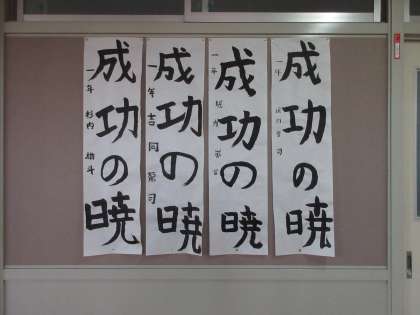 成功の暁
一年
成功の暁
一年
成功の暁
一年 吉岡
司
成功の暁
一年 杉内
斗